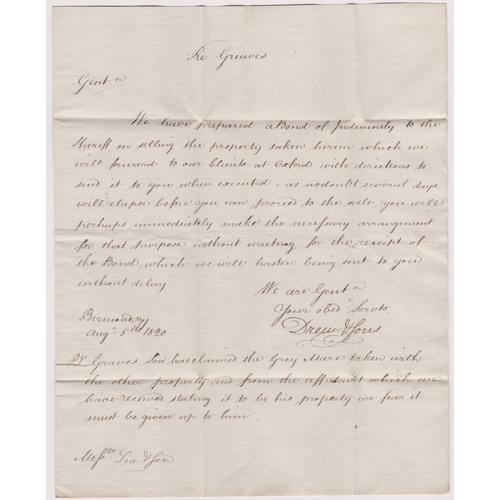 Re Greaves
Gentn
We have prepared a Bond of Indemnity to the
Sheriff on selling the property taken herein which we
will forward to our Clients at Oxford with directions to
send it to you when executed - as no doubt several days
will elapse before you can proceed to the sale, you will
perhaps immediately make the necessary arrangement
for that purpose without waiting for the receipt of
the Bond, which we will hasten being sent to you
without delay
We are Gentn
Your obedt Servts
Drew & Sons
Bermondsey
Augt 5th 1820
Graves Son has claimed the Grey Mare taken with
the other property and from the affidavit which we
have received stating it to be his property we fear it
must be given up to him
Messrs Lea & Son